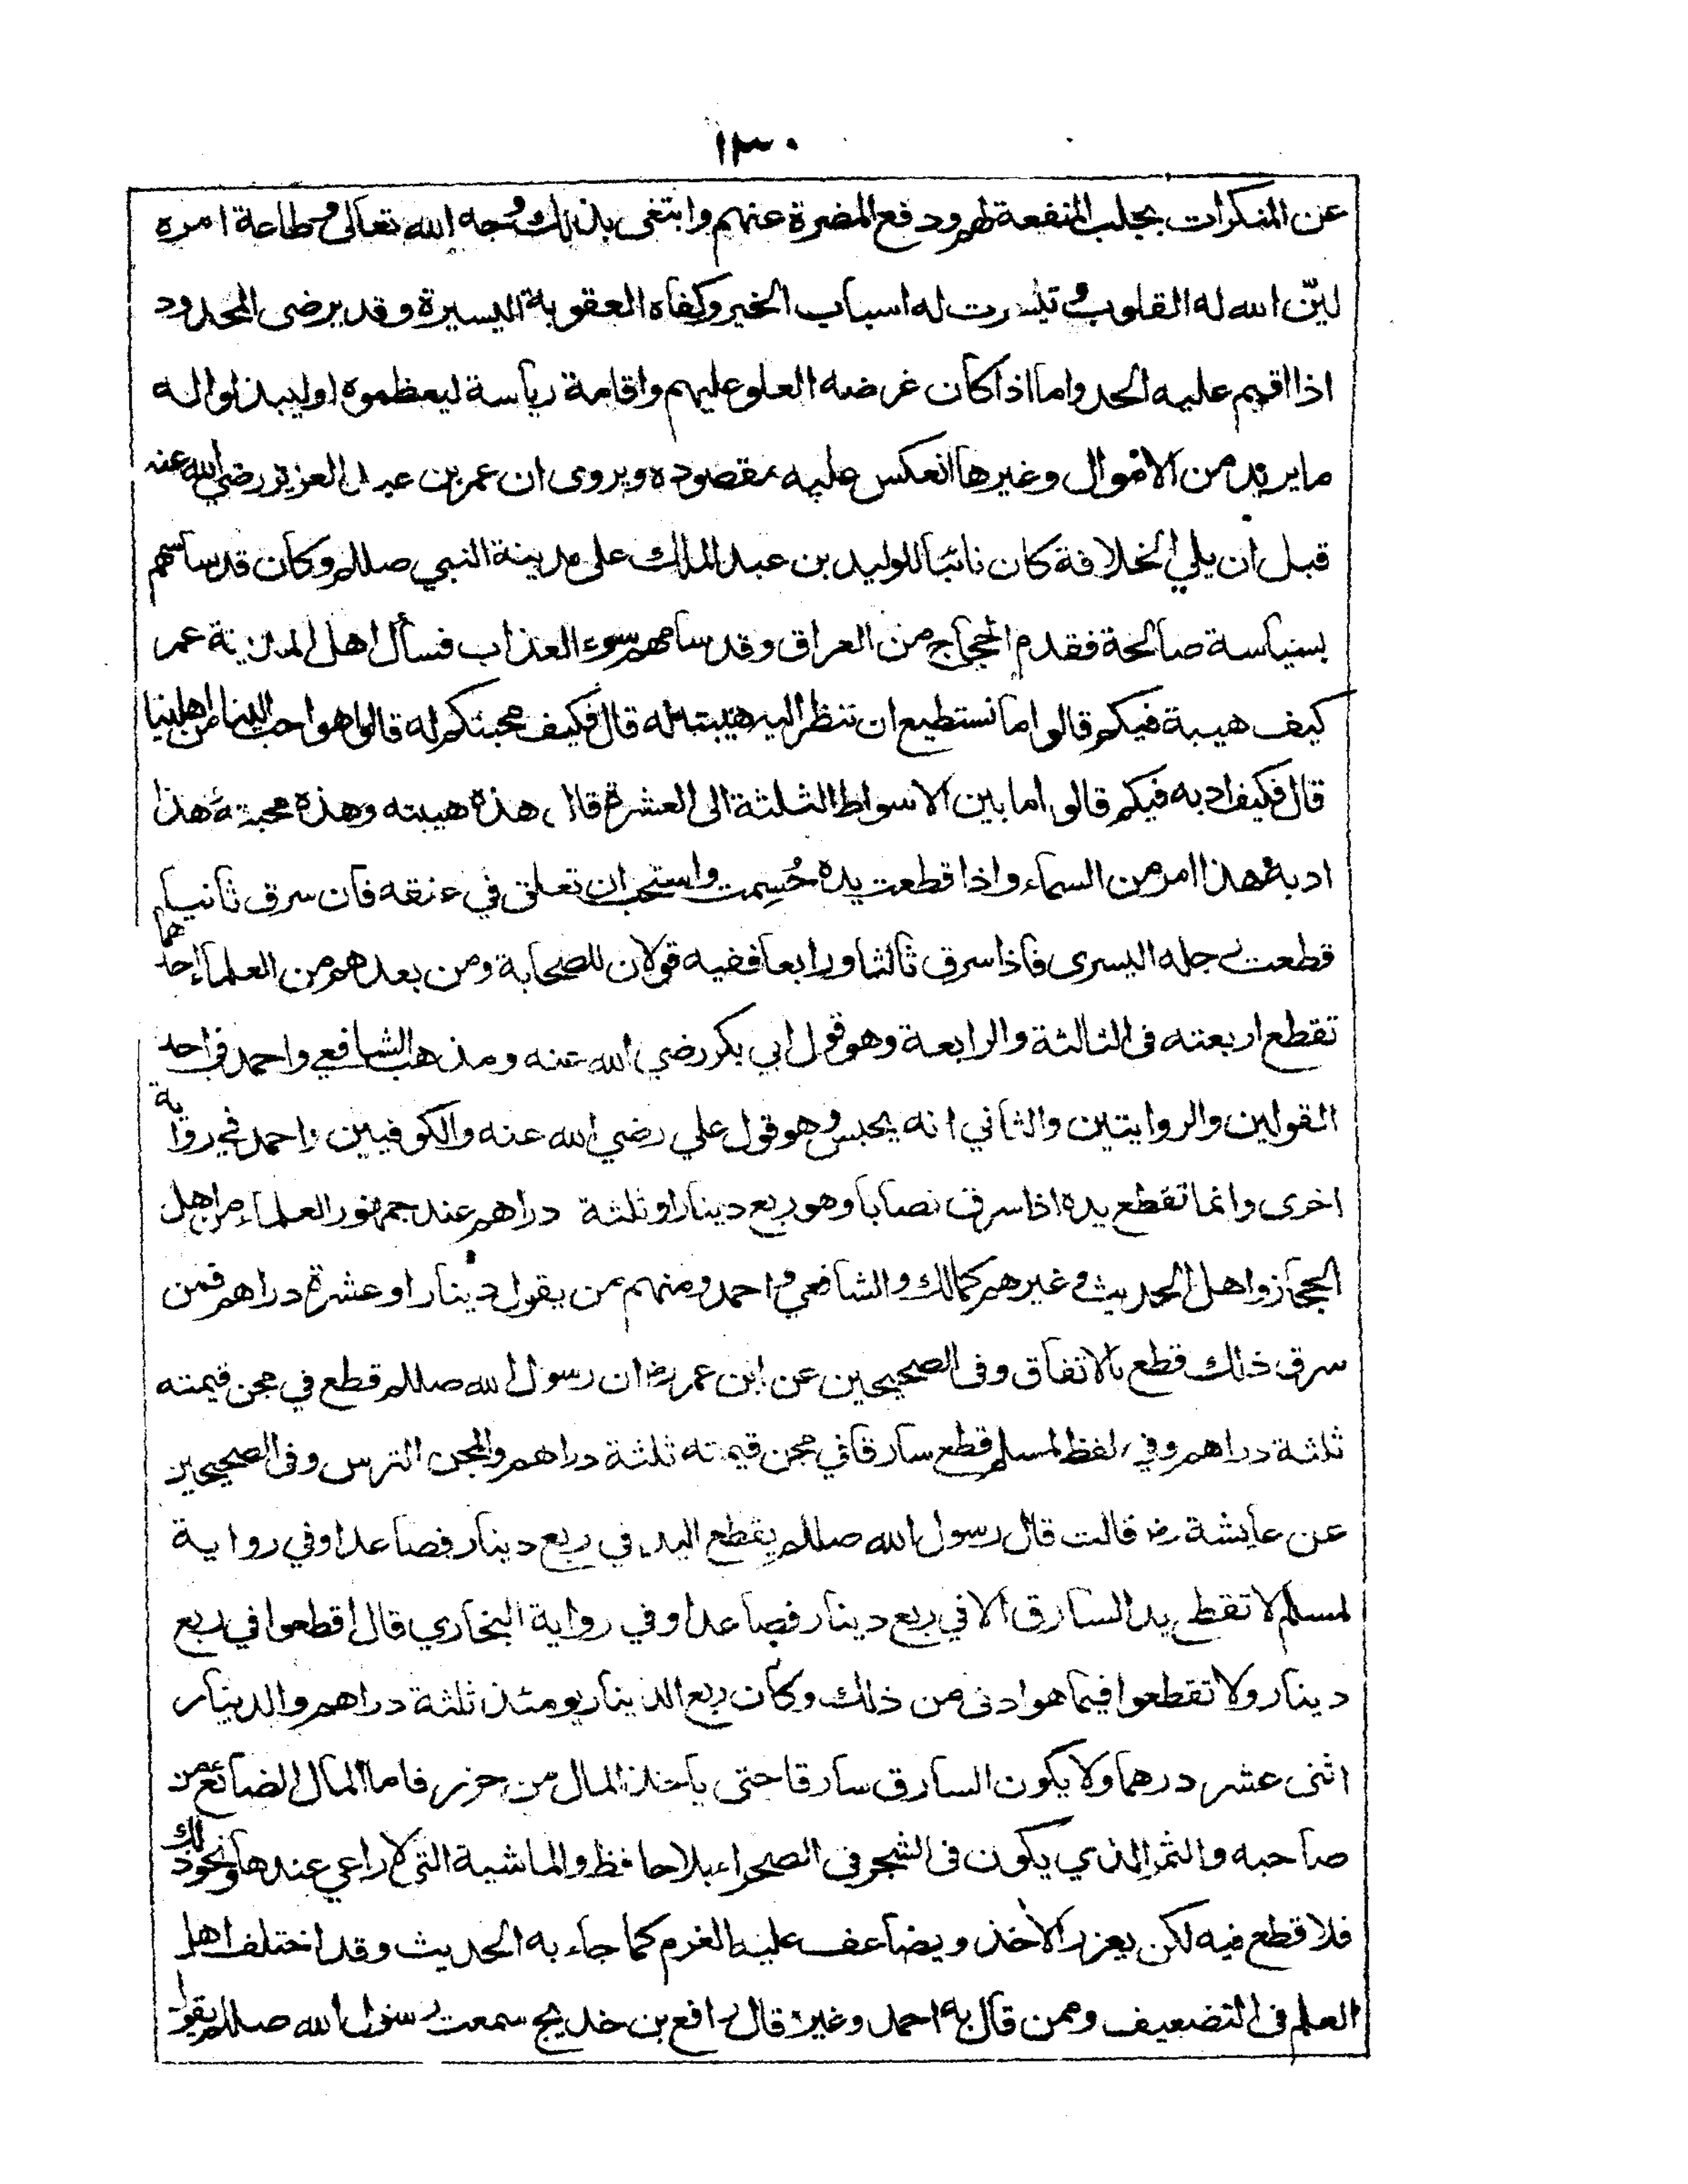 ١٣٠
عن المنكرات بجلب المنفعة لهم ودفع المضرة عنهم وابتغى بذلك وجه الله تعالى وطاعة امره
ليّن الله له القلوب وتيسرت له اسباب الخير وكفاه العقوبة اليسيرة وقد يرضى المحدود
اذا اقيم عليه الحد واما اذا كان غرضه العلو عليهم واقامة رياسة ليعظموه او ليبذلوا له
ما يريد من الاموال وغيرها انعكس عليه مقصوده ويروى ان عمر بن عبد العزيز رضي الله عنه
قبل ان يلي الخلافة كان نائبا للوليد بن عبد الملك على مدينة النبي صللم وكان قد ساسهم
بسياسة صالحة فقدم الحجاج من العراق وقد سامهم سوء العذاب فسأل اهل المدينة عمر
كيف هيبة فيكم قالوا ما نستطيع ان ننظر اليه هيبتا له قال فكيف محبتكم له قالوا هو احب الينا من اهلينا
قال فكيف ادبه فيكم قالوا ما بين الاسواط الثلثة الى العشرة قال هذه هيبته وهذه محبته وهذا
ادبه هذا امر من السماء واذا قطعت يده حُسِمت واستحب ان تعلق في عنقه فان سرق ثانيا
قطعت رجله اليسرى فاذا سرق ثالثا ورابعا ففيه قولان للصحابة ومن بعدهم من العلماء احدهما
تقطع اربعته فى الثالثة والرابعة وهو قول ابي بكر رضي الله عنه ومذهب الشافعي واحمد في احد
القولين والروايتين والثاني انه يحبس وهو قول علي رضي الله عنه والكوفيين واحمد في رواية
اخرى وانما تقطع يده اذا سرق نصابا وهو ربع دينار او ثلثة دراهم عند جمهور العلماء من اهل
الحجاز واهل الحديث وغيرهم كمالك والشافعي واحمد ومنهم من يقول دينار او عشرة دراهم فمن
سرق ذلك قطع بالاتفاق وفى الصحيحين عن ابن عمر رض ان رسول الله صللم قطع في مجن قيمته
ثلثة دراهم وفي لفظ لمسلم قطع سارقا في مجن قيمته ثلثة دراهم والمجن الترس وفى الصحيحين
عن عايشة رض قالت قال رسول الله صللم يقطع اليد في ربع دينار فصاعدا وفي رواية
لمسلم لا تقطع يد السارق الا في ربع دينار فصاعدا وفي رواية البخاري قال اقطعوا في ربع
دينار ولا تقطعوا فيما هو ادنى من ذلك وكان ربع الدينار يومئذ ثلثة دراهم والدينار
اثنى عشر درهما ولا يكون السارق سارقا حتى يأخذ المال من حرز فاما المال الضائع من
صاحبه والثمر الذي يكون فى الشجر فى الصحراء بلا حافظ والماشية التي لا راعي عندها ونحو ذلك
فلا قطع فيه لكن يعزر الاخذ ويضاعف عليه الغرم كما جاء به الحديث وقد اختلف اهل
العلم فى التضعيف وممن قال به احمد وغيره قال رافع بن خديج سمعت رسول الله صللم يقول